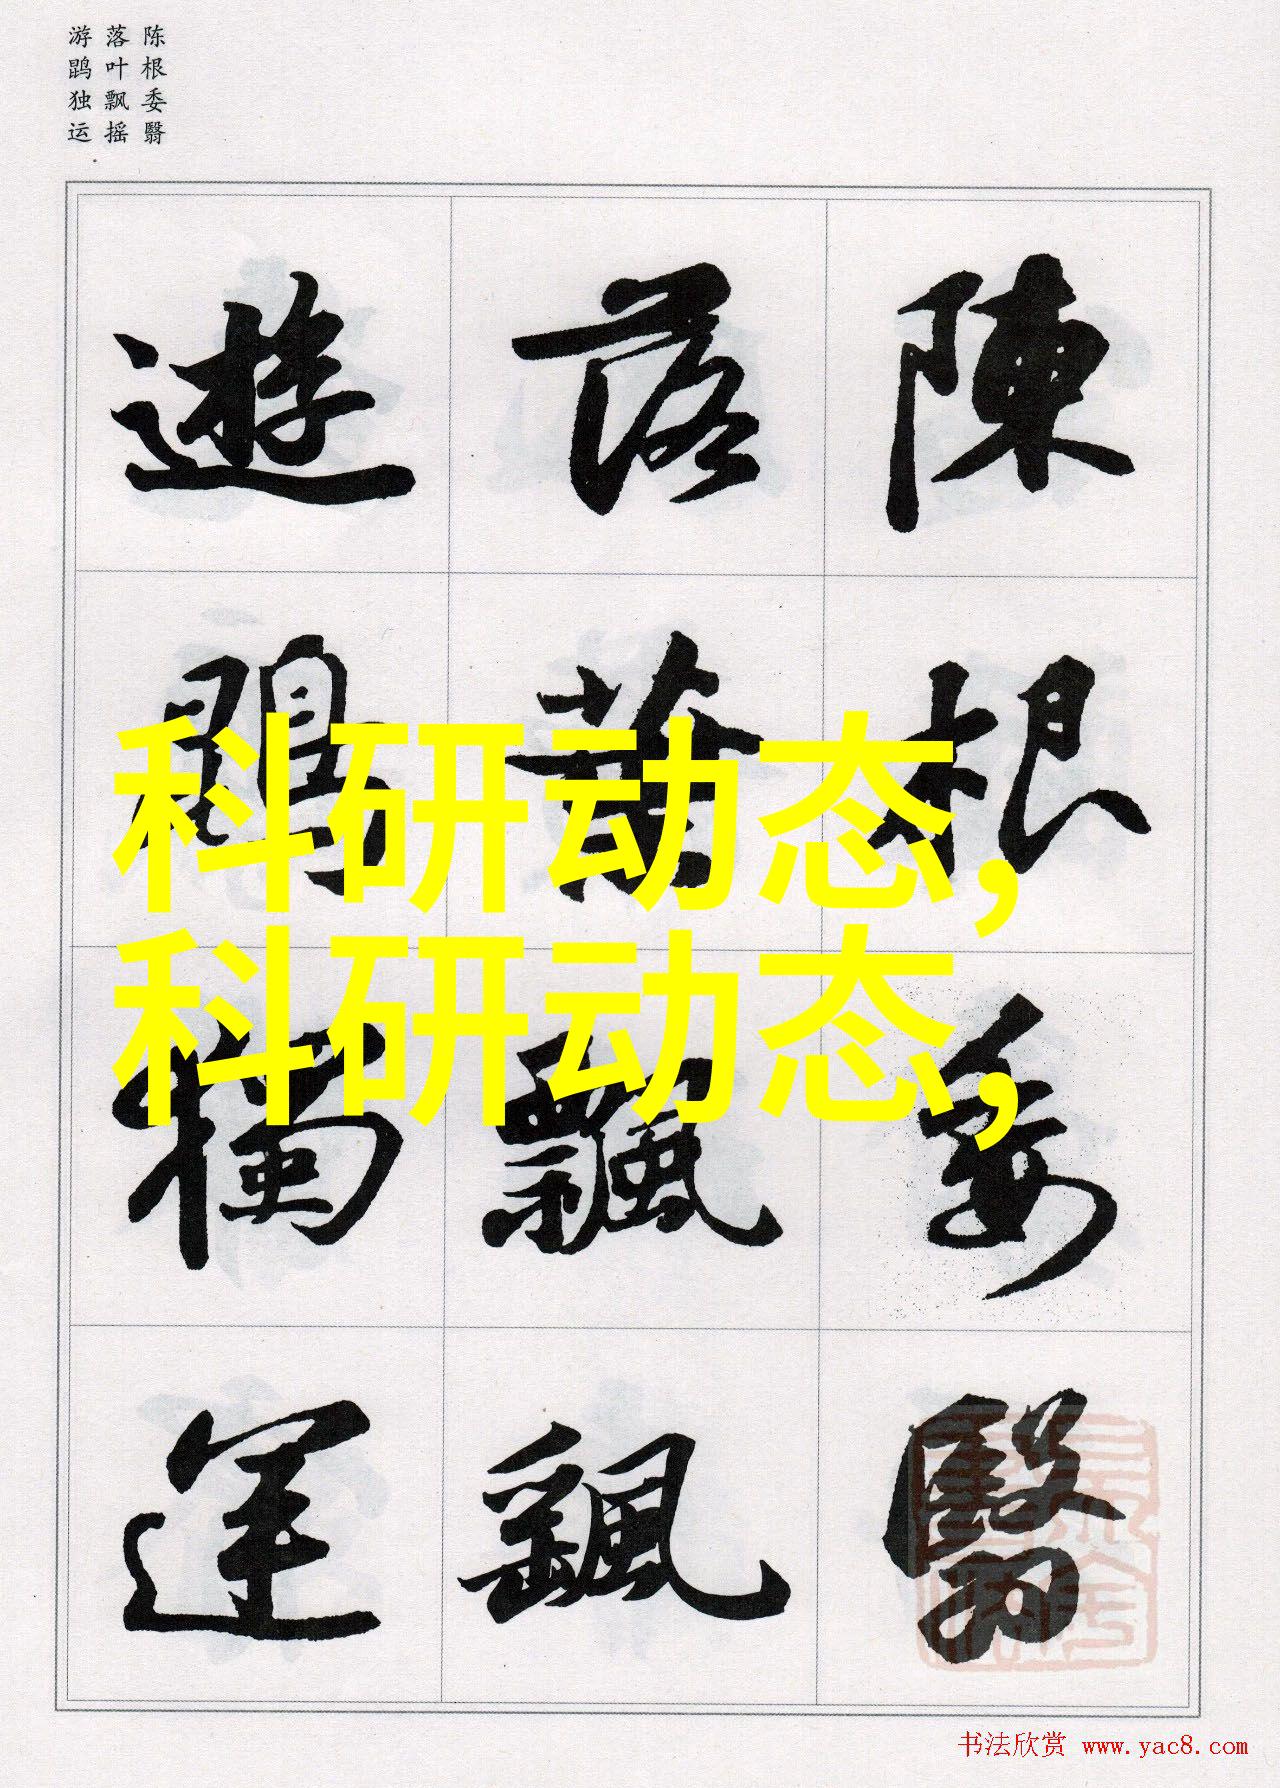 陈根委翳
落叶飘摇
游鹍独运
陳根委翳
落葉飄颻
遊鵾獨運
科研动态,
科研动态,
书法欣赏 www.yac8.com